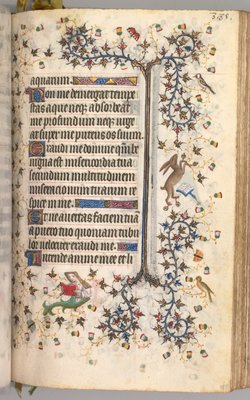 aquarum.
Non me demergat tempe
stas aque neqꝫ absorbeat
me profundum neqꝫ urge
at super me puteus os suum.
Exaudi me domine qm̄ be
nigna est misericordia tua
secundum multitudinem
miseracionum tuarum re
spice in me.
Et ne avertas faciem tuā
a puero tuo quoniam tribu
lor velociter exaudi me.
Intende anime mee et li